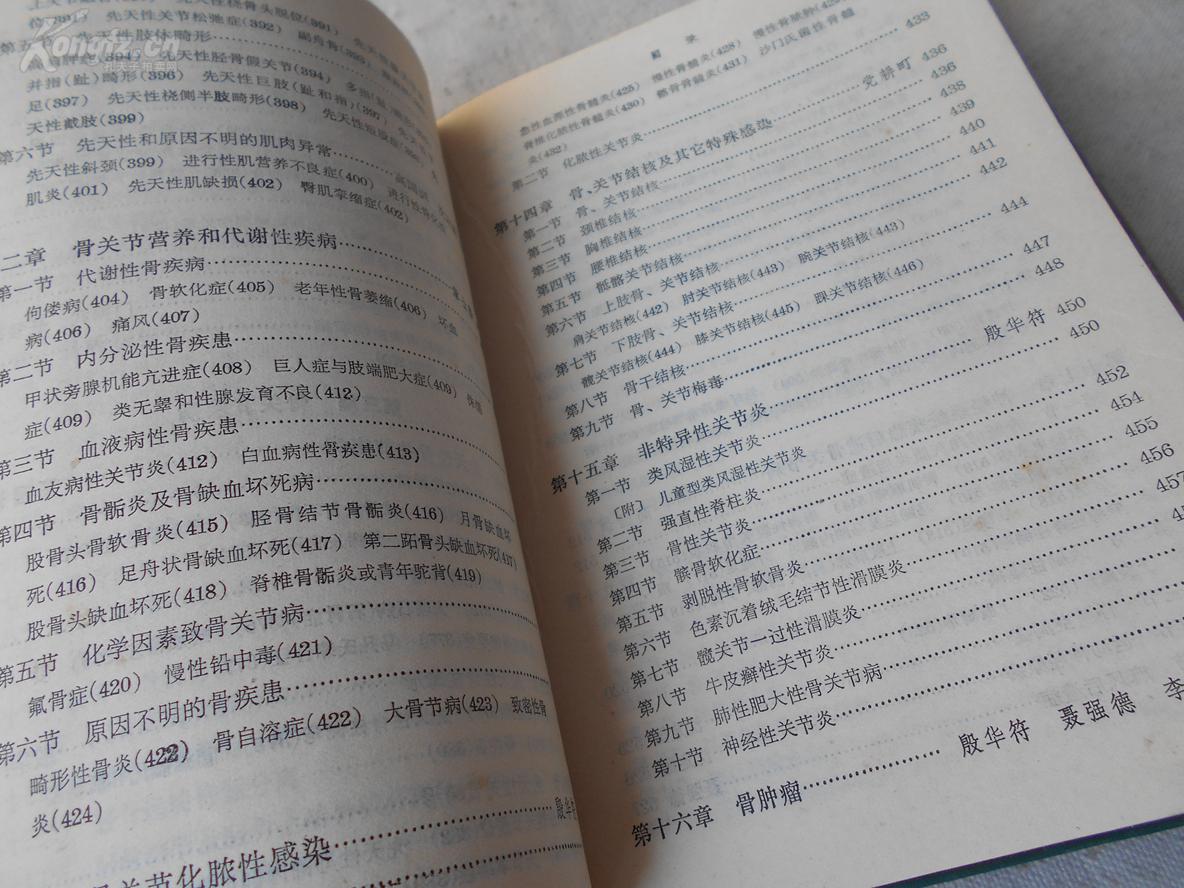 Kongfz.cn
上关节融合 先天性桡骨头脱位(391) 先天性
位(391) 先天性关节松弛症(392) 副舟骨(
先天性肢体畸形
(394) 先天性胫骨假关节(394) 多指
并指(趾)畸形(396) 先天性巨肢(趾和指)(397)
足(397) 先天性桡侧半肢畸形(398) 先天性
天性截肢(399)
第六节 先天性和原因不明的肌肉异常
先天性斜颈(399) 进行性肌营养不良症(400) 进行性骨化性
肌炎(401) 先天性肌缺损(402) 臀肌挛缩症(402)
二章 骨关节营养和代谢性疾病
第一节 代谢性骨疾病
佝偻病(404) 骨软化症(405) 老年性骨萎缩(406) 坏血
病(406) 痛风(407)
第二节 内分泌性骨疾患
甲状旁腺机能亢进症(408) 巨人症与肢端肥大症(409)
症(409) 类无睾和性腺发育不良(412)
第三节 血液病性骨疾患
血友病性关节炎(412) 白血病性骨疾患(413)
第四节 骨骺炎及骨缺血坏死病
股骨头骨软骨炎(415) 胫骨结节骨骺炎(416) 月骨缺血坏
死(416) 足舟状骨缺血坏死(417) 第二跖骨头缺血坏死(417)
股骨头缺血坏死(418) 脊椎骨骺炎或青年驼背(419)
第五节 化学因素致骨关节病
氟骨症(420) 慢性铅中毒(421)
第六节 原因不明的骨疾患
畸形性骨炎(422) 骨自溶症(422) 大骨节病(423) 致密性骨
炎(424)
殷华
骨关节化脓性感染
目 录
急性血源性骨髓炎(425) 慢性骨髓炎(428) 慢性骨脓肿(429)
脊椎化脓性骨髓炎(430) 髂骨骨髓炎(431) 沙门氏菌性骨髓
炎(432)
第二节 化脓性关节炎 433
第十四章 骨、关节结核及其它特殊感染 党耕町 436
第一节 骨、关节结核 436
第二节 颈椎结核 438
第三节 胸椎结核 439
第四节 腰椎结核 440
第五节 骶髂关节结核 441
第六节 上肢骨、关节结核 442
肩关节结核(442) 肘关节结核(443) 腕关节结核(443)
第七节 下肢骨、关节结核 444
髋关节结核(444) 膝关节结核(445) 踝关节结核(446)
第八节 骨干结核 447
第九节 骨、关节梅毒 448
第十五章 非特异性关节炎 殷华符 450
第一节 类风湿性关节炎 450
〔附〕 儿童型类风湿性关节炎
第二节 强直性脊柱炎 452
第三节 骨性关节炎 454
第四节 髌骨软化症 455
第五节 剥脱性骨软骨炎 456
第六节 色素沉着绒毛结节性滑膜炎 457
第七节 髋关节一过性滑膜炎
第八节 牛皮癣性关节炎
第九节 肺性肥大性骨关节病
第十节 神经性关节炎
第十六章 骨肿瘤 殷华符 聂强德 李